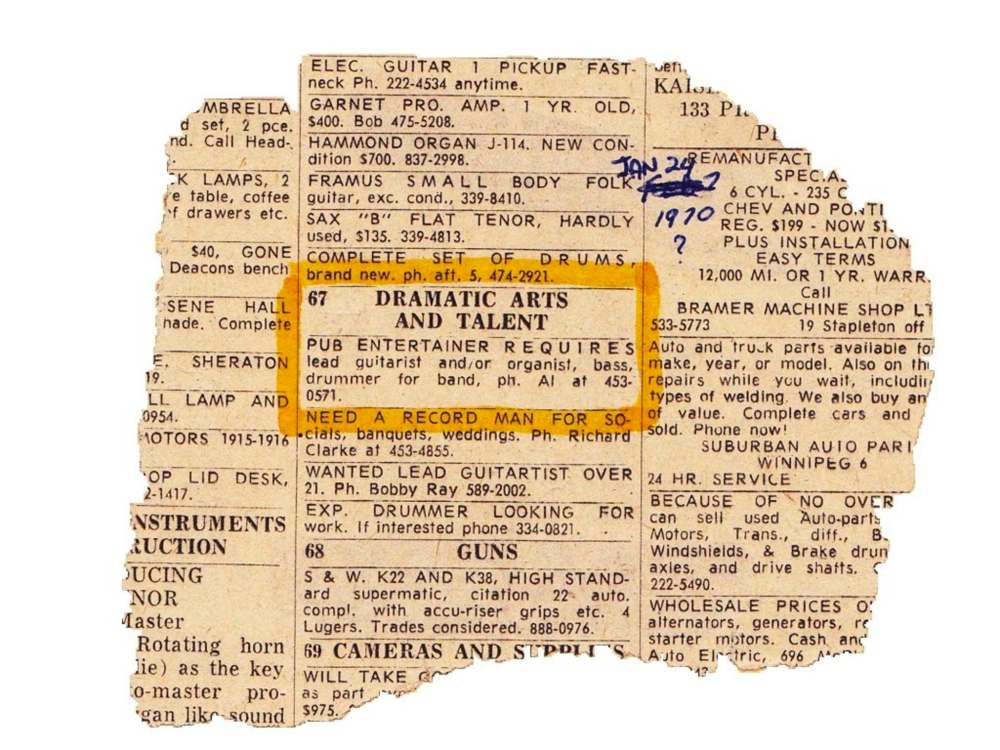 MBRELLA
d set, 2 pce.
nd. Call Head-
K LAMPS, 2
e table, coffee
f drawers etc.
$40, GONE
Deacons bench
SENE HALL
made. Complete
E, SHERATON
19.
LL LAMP AND
0954.
MOTORS 1915-1916
OP LID DESK,
2-1417.
NSTRUMENTS
RUCTION
UCING
NOR
Master
Rotating horn
lie) as the key
o-master pro-
gan like sound
ELEC. GUITAR 1 PICKUP FAST-
neck Ph. 222-4534 anytime.
GARNET PRO. AMP. 1 YR. OLD,
$400. Bob 475-5208.
HAMMOND ORGAN J-114. NEW CON-
dition $700. 837-2998.
FRAMUS SMALL BODY FOLK
guitar, exc. cond., 339-8410.
SAX "B" FLAT TENOR, HARDLY
used, $135. 339-4813.
COMPLETE SET OF DRUMS,
brand new. ph. aft. 5, 474-2921.
67 DRAMATIC ARTS
AND TALENT
PUB ENTERTAINER REQUIRES
lead guitarist and/or organist, bass,
drummer for band, ph. Al at 453-
0571.
NEED A RECORD MAN FOR SO-
cials, banquets, weddings. Ph. Richard
Clarke at 453-4855.
WANTED LEAD GUITARTIST OVER
21. Ph. Bobby Ray 589-2002.
EXP. DRUMMER LOOKING FOR
work. If interested phone 334-0821.
68 GUNS
S & W. K22 AND K38, HIGH STAND-
ard supermatic, citation 22 auto.
compl. with accu-riser grips etc. 4
Lugers. Trades considered. 888-0976.
69 CAMERAS AND SUPPLIES
WILL TAKE
as part
$975.
JAN 24
1970
?
133
REMANUFACT
SPECIA
6 CYL. - 235 C
CHEV AND PONTI
REG. $199 - NOW $1
PLUS INSTALLATION
EASY TERMS
12,000 MI. OR 1 YR. WARR
Call
BRAMER MACHINE SHOP LT
533-5773 19 Stapleton off
Auto and truck parts available for
make, year, or model. Also on th
repairs while you wait, includin
types of welding. We also buy an
of value. Complete cars and
sold. Phone now!
SUBURBAN AUTO PART
WINNIPEG 6
24 HR. SERVICE
BECAUSE OF NO OVER
can sell used Auto-parts
Motors, Trans., diff., B
Windshields, & Brake drum
axles, and drive shafts.
222-5490.
WHOLESALE PRICES O
alternators, generators, re
starter motors. Cash and
Auto Electric, 696